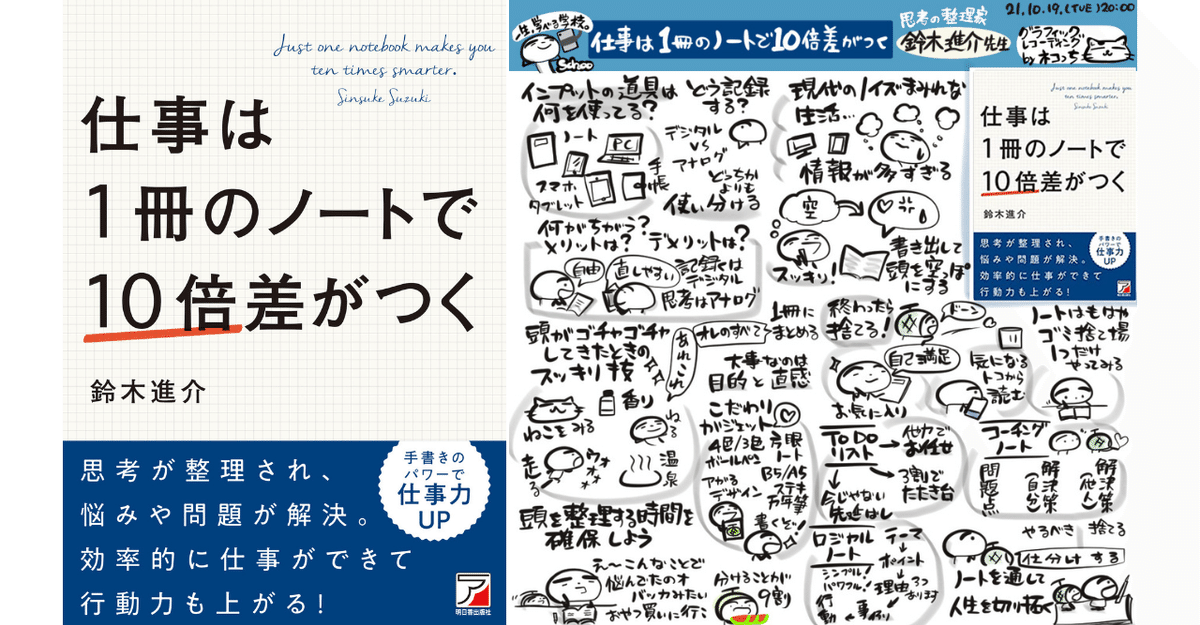 Just one notebook makes you
ten times smarter.
Sinsuke Suzuki
仕事は
1冊のノートで
10倍差がつく
鈴木進介
思考が整理され、
悩みや問題が解決。
効率的に仕事ができて
行動力も上がる!
手書きの
パワーで
仕事力
UP
ア
明日香出版社
一生学べる学校。
Schoo
仕事は1冊のノートで10倍差がつく
思考の整理家
鈴木進介先生
21.10.19.(TUE)20:00
グラフィック
レコーディング
by ネコっち
インプットの道具は
何を使ってる?
ノート
PC
スマホ
タブレット
手帳
どう記録
する?
デジタル
VS
アナログ
どっちか
よりも
使い分ける
何がちがう?
メリットは? デメリットは?
自由
直しやすい
記録くは
デジタル
思考はアナログ
現代のノイズまみれな
生活…
情報が多すぎる
空
スッキリ!
書き出して
頭を空っぽ
にする
Just one notebook makes you
ten times smarter.
Sinsuke Suzuki
仕事は
1冊のノートで
10倍差がつく
鈴木進介
思考が整理され、
悩みや問題が解決。
効率的に仕事ができて
行動力も上がる!
手書きの
パワーで
仕事力
UP
頭がゴチャゴチャ
してきたときの
スッキリ技
あれこれ
ねこをみる
香り
ねる
走る
ウォォォ
温泉
頭を整理する時間を
確保しよう
え〜こんなことで
悩んでたのオ
バッカみたい
おやつ買いに行こ
オレのすべて
1冊に
まとめる
大事なのは
目的と直感
こだわり
ガジェット
4色/3色
ボールペン
方眼
ノート
B5/A5
アガる
デザイン
ステキ
万年筆
書くぞ!
分けることが
9割
終わったら
捨てる!
ドーン
自己満足
お気に入り
気になる
トコから
読む
ノートはもはや
ゴミ捨て場
1つだけ
やってみる
TODO
リスト
他力で
お任せ
3割で
たたき台
今じゃない
先延ばし
ロジカル
ノート
シンプル!
パワフル!
テーマ
ポイント
理由
3つ
あります
事例
行動
コーチング
ノート
問題点
解決策(自分)
解決策(他人)
やるべき
捨てる
仕分けする
ノートを通して
人生を切り拓く